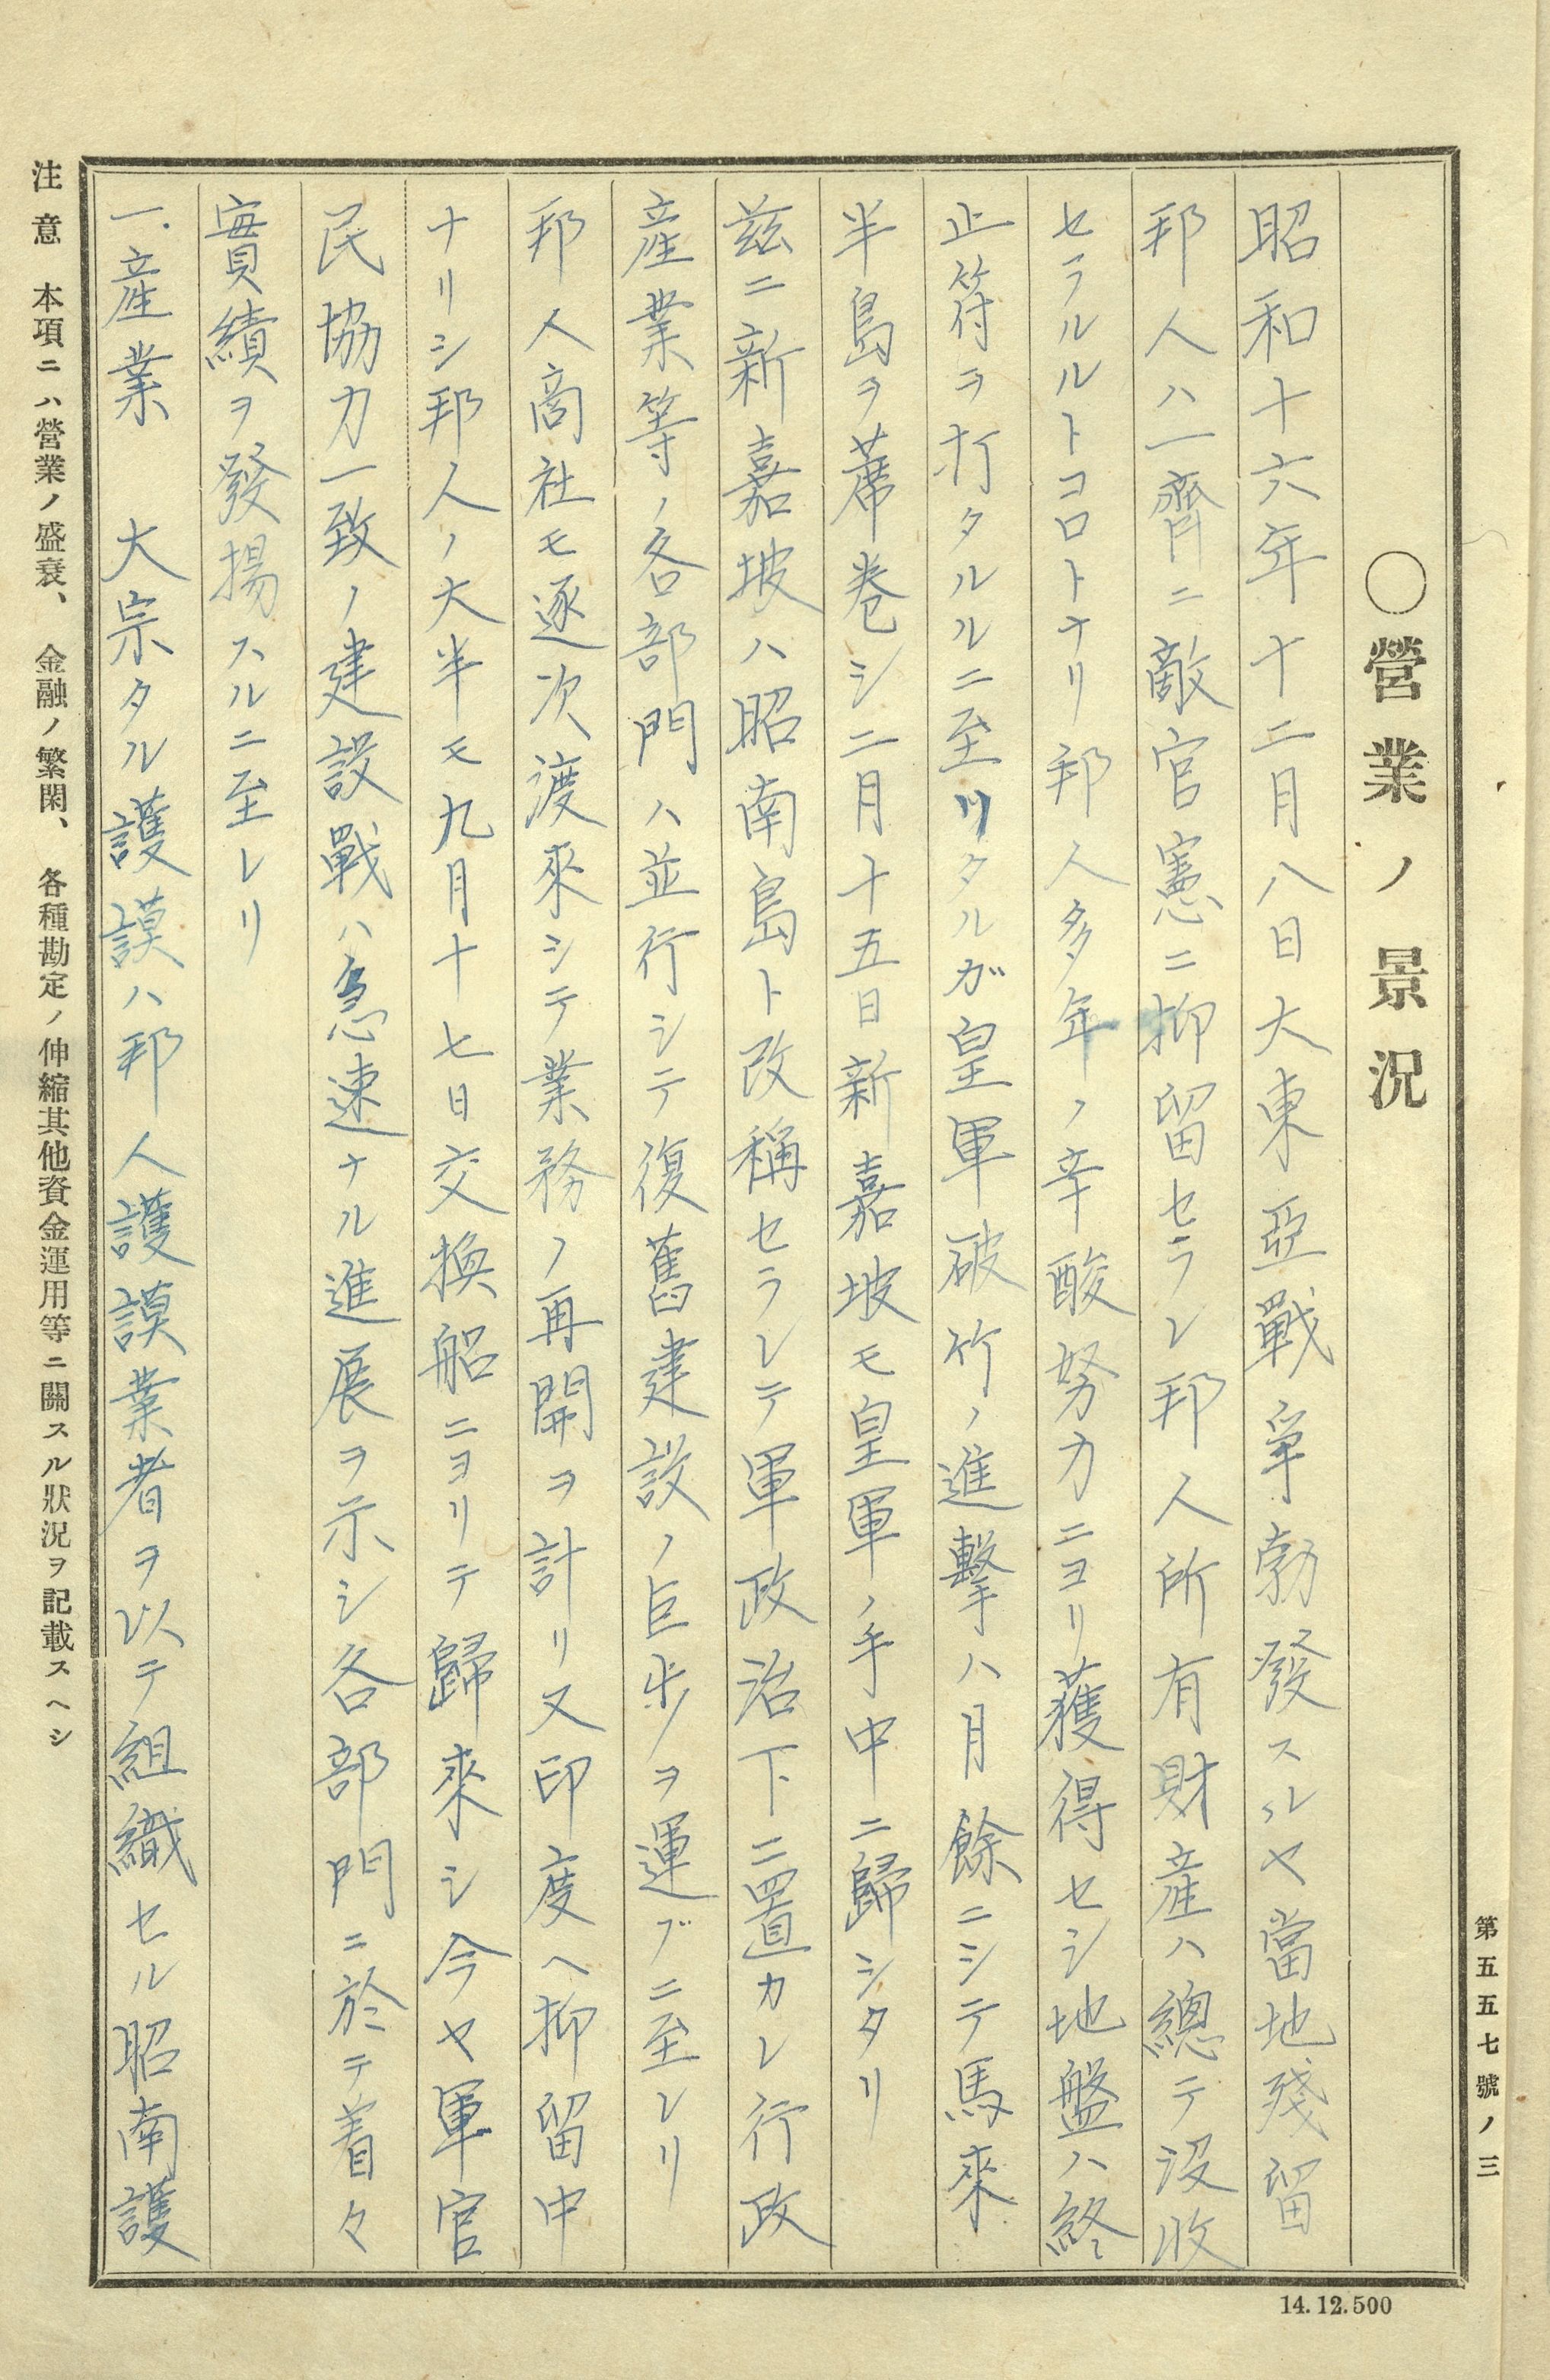 第五五七號ノ三
〇營業ノ景況
昭和十六年十二月八日大東亞戰爭勃發スルヤ當地殘留
邦人ハ一齊ニ敵官憲ニ抑留セラレ邦人所有財產ハ總テ沒收
セラルルトコロトナリ邦人多年ノ辛酸努力ニヨリ獲得セシ地盤ハ終
止符ヲ打タルルニ至リタルガ皇軍破竹ノ進擊ハ月餘ニシテ馬來
半島ヲ蓆卷シ二月十五日新嘉坡モ皇軍ノ手中ニ歸シタリ
茲ニ新嘉坡ハ昭南島ト改稱セラレテ軍政治下ニ置カレ行政
產業等ノ各部門ハ並行シテ復舊建設ノ巨步ヲ運ブニ至レリ
邦人商社モ逐次渡來シテ業務ノ再開ヲ計リ又印度ヘ抑留中
ナリシ邦人ノ大半モ九月十七日交換船ニヨリテ歸來シ今ヤ軍官
民協力一致ノ建設戰ハ急速ナル進展ヲ示シ各部門ニ於テ着々
實績ヲ發揚スルニ至レリ
一.產業　大宗タル護謨ハ邦人護謨業者ヲ以テ組織セル昭南護
注意　本項ニハ營業ノ盛衰、金融ノ繁閑、各種勘定ノ伸縮其他資金運用等ニ關スル狀況ヲ記載スヘシ
14.12.500